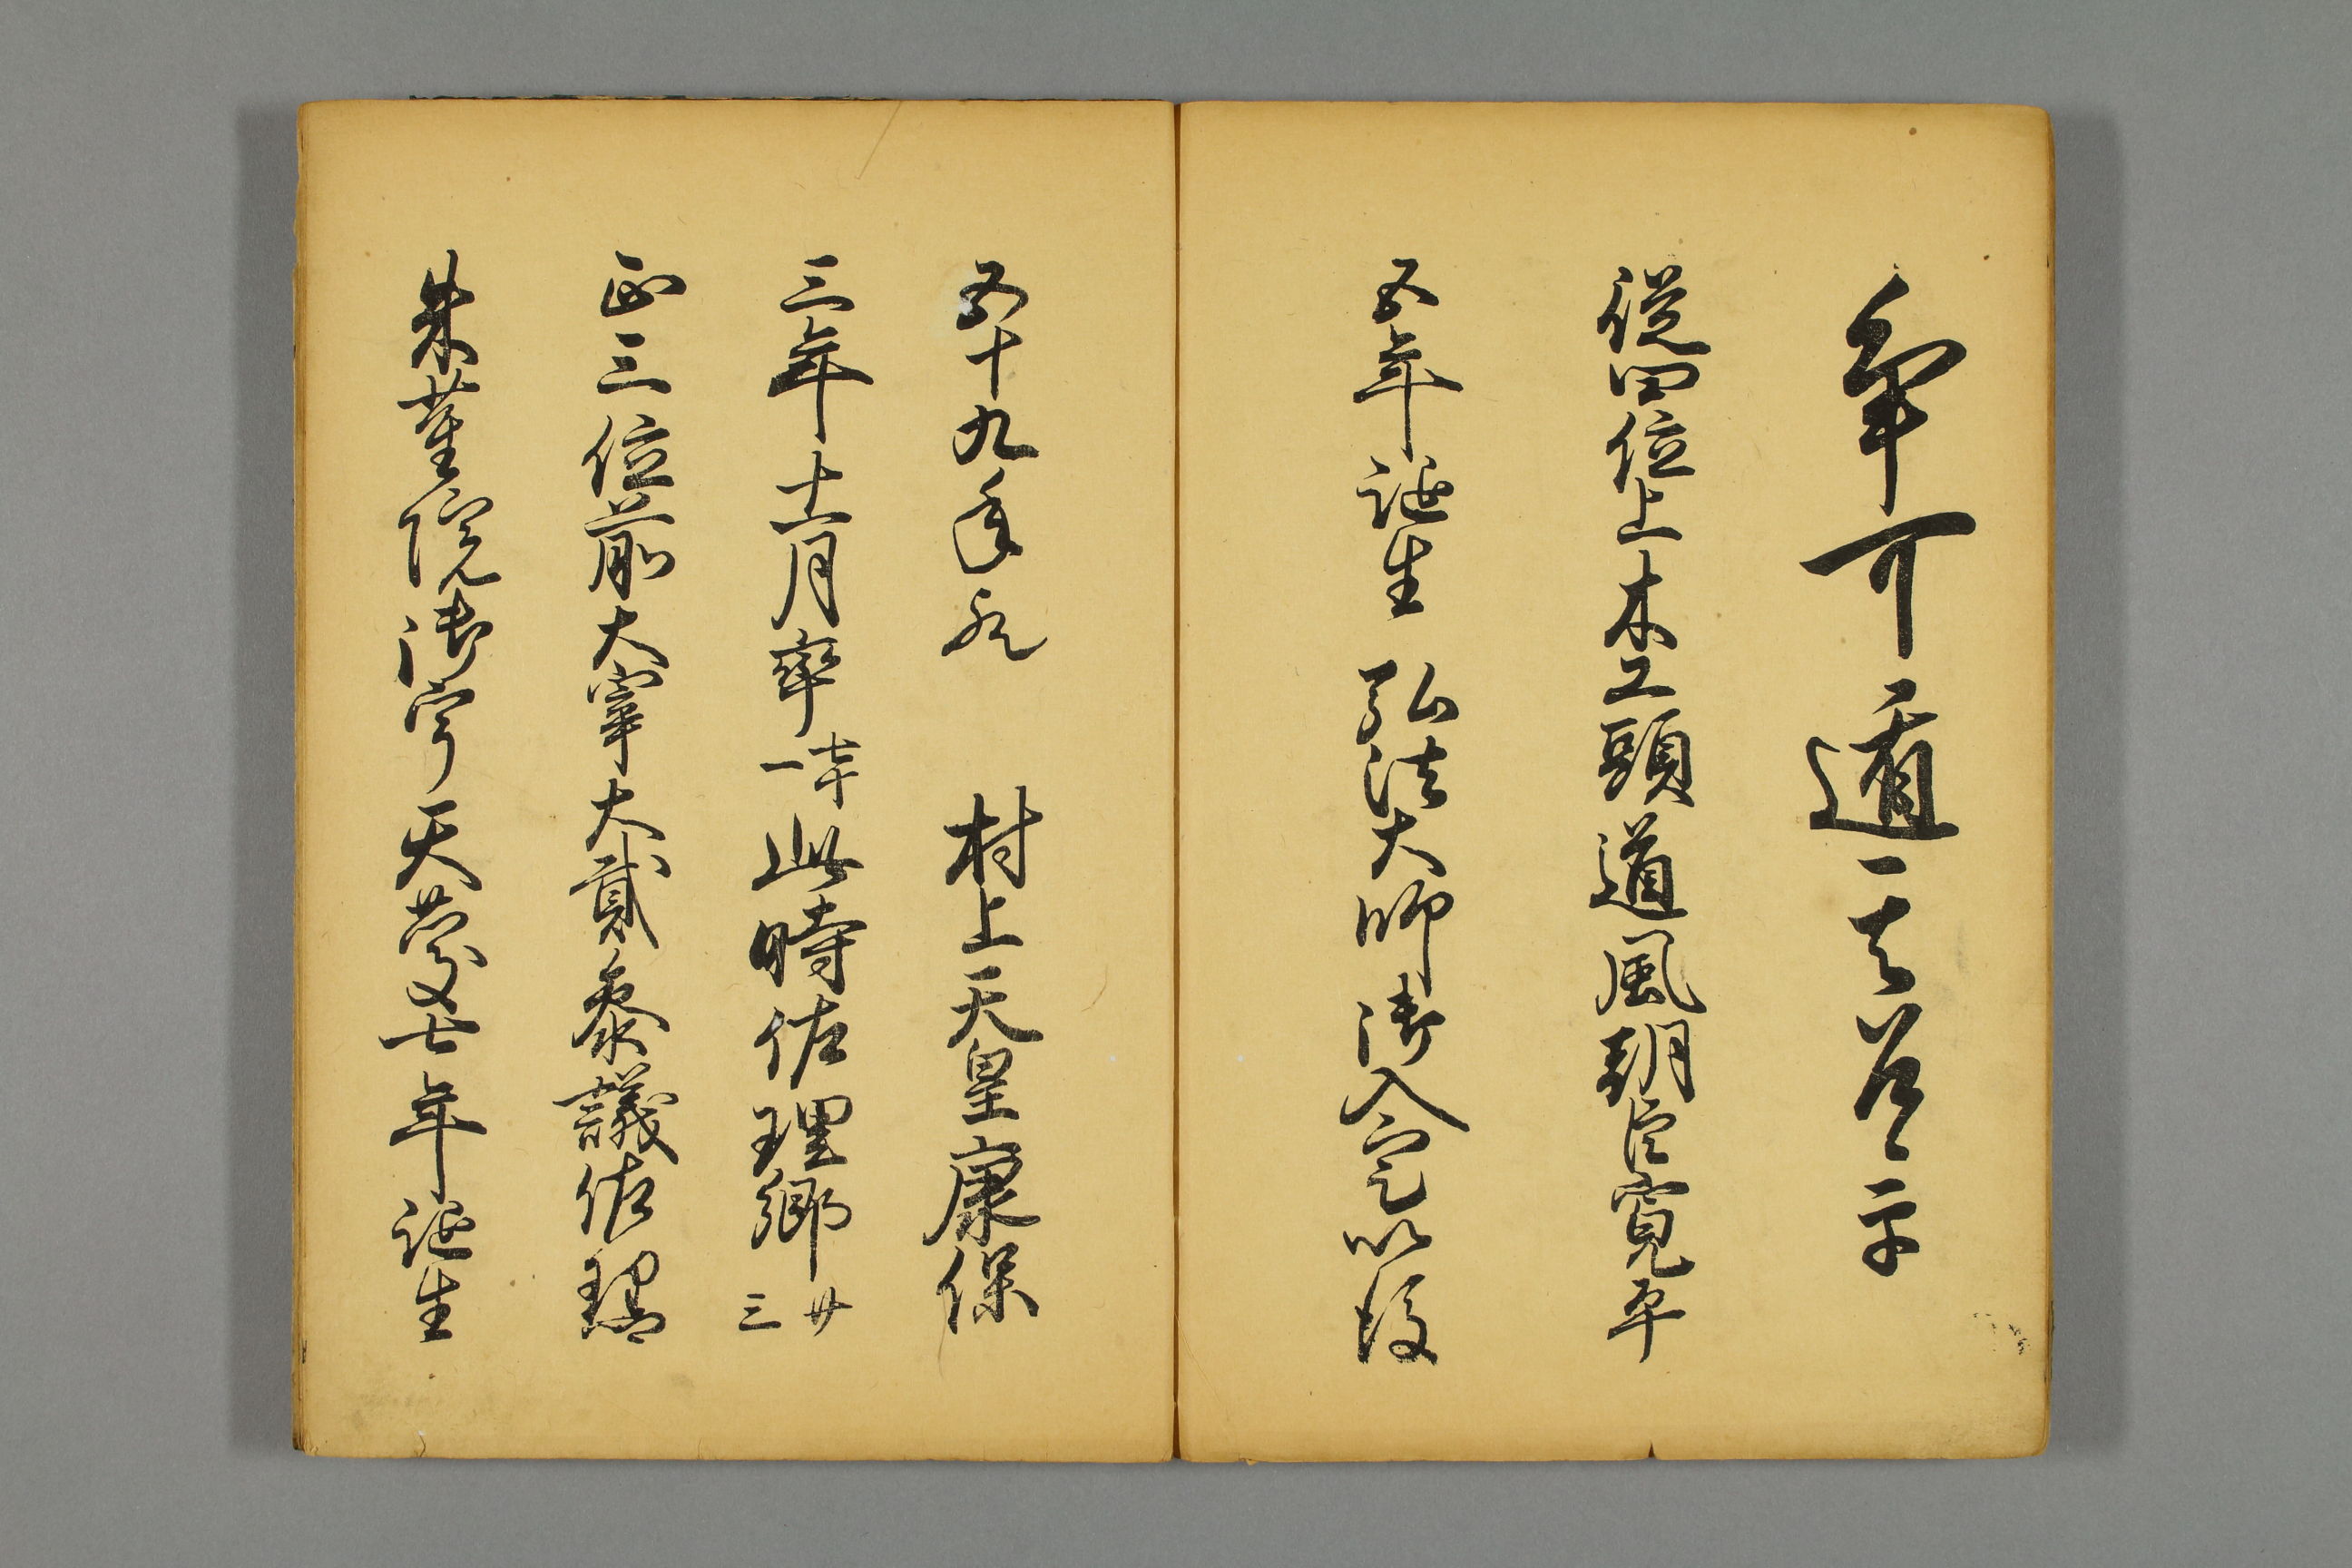 可遁
従四位上木工頭道風朝臣寛平
五年誕生 弘法大師御入定以後
五十九年 村上天皇康保
三年十二月卒七十一此時佐理卿廿三
正三位前大宰大貳参議佐理
朱雀院御宇天慶七年誕生